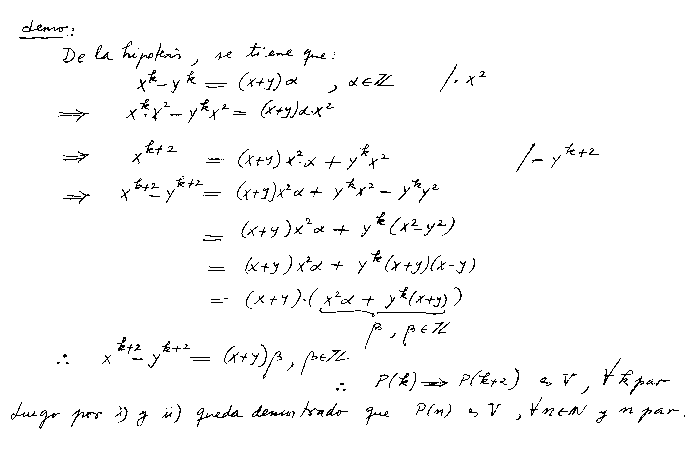 demo:
De la hipótesis, se tiene que:
x^k - y^k = (x+y)α , α∈ℤ /· x²
⇒ x^k·x² - y^k x² = (x+y)α·x²
⇒ x^{k+2} = (x+y)x²·α + y^k x² /- y^{k+2}
⇒ x^{k+2} - y^{k+2} = (x+y)x²α + y^k x² - y^k y²
= (x+y)x²α + y^k(x²-y²)
= (x+y)x²α + y^k(x+y)(x-y)
= (x+y)·(x²α + y^k(x+y))
β , β∈ℤ
∴ x^{k+2} - y^{k+2} = (x+y)β, β∈ℤ
∴ P(k) ⇒ P(k+2) es V, ∀k par
Luego por i) y ii) queda demostrado que P(n) es V, ∀n∈ℕ y n par.